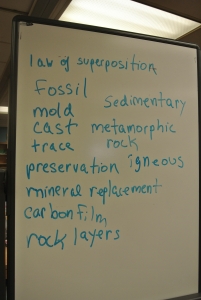 law of superposition
Fossil
mold sedimentary
cast metamorphic
trace rock
preservation igneous
mineral replacement
carbon film
rock layers